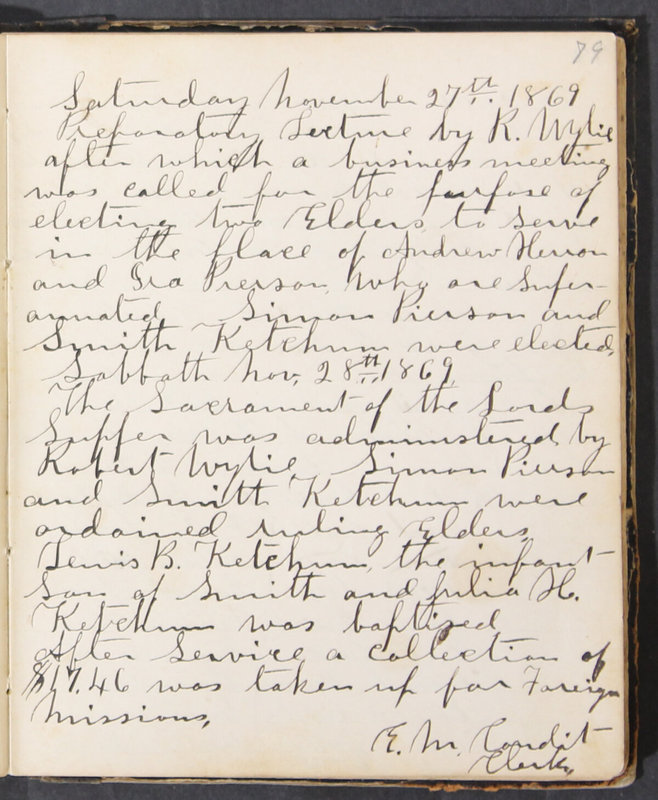 79
Saturday November 27th. 1869
Preparatory Lecture by R. Wylie
after which a business meeting
was called for the purpose of
electing two Elders to serve
in the place of Andrew Herron
and Ira Pierson, who are super-
annuated Simon Pierson and
Smith Ketchum were elected,
Sabbath Nov, 28th 1869,
The Sacrament of the Lords
Supper was administered by
Robert Wylie, Simon Pierson
and Smith Ketchum were
ordained ruling Elders,
Lewis B. Ketchum, the infant
Son of Smith and Julia H.
Ketchum was baptized
After Service a collection of
$17.46 was taken up for Foreign
Missions,
E. M. Condit
Clerk,